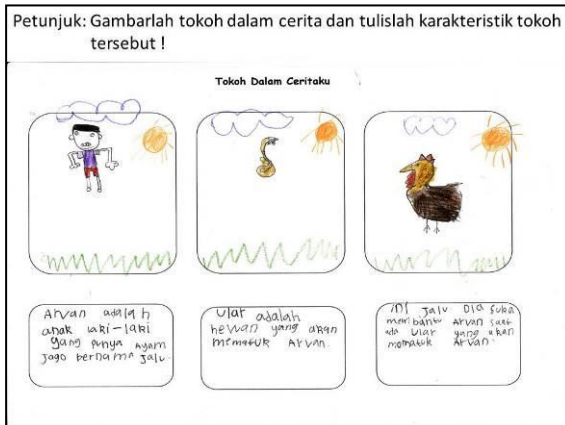 Petunjuk: Gambarlah tokoh dalam cerita dan tulislah karakteristik tokoh
tersebut !
Tokoh Dalam Ceritaku
Arvan adalah
anak laki-laki
yang punya ayam
jago bernama jalu.
Ular adalah
hewan yang akan
mematuk Arvan.
ini jalu Dia suka
membantu Arvan saat
ada Ular yang akan
mematuk Arvan.